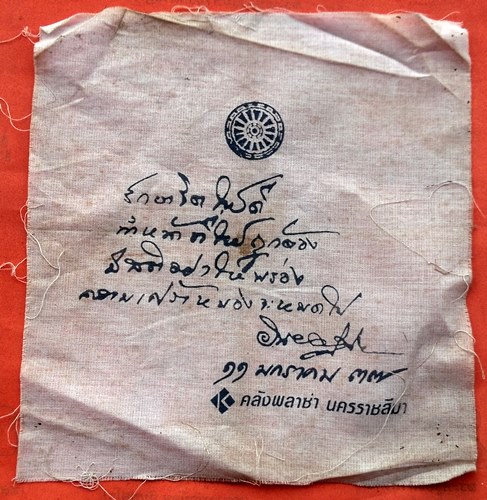 รักษาจิตให้ดี
ทำหน้าที่ให้ถูกต้อง
มีสติอย่าให้พร่อง
ความเศร้าหมองจะหมดไป
๑๑ มกราคม ๓๗
คลังพลาซ่า นครราชสีมา